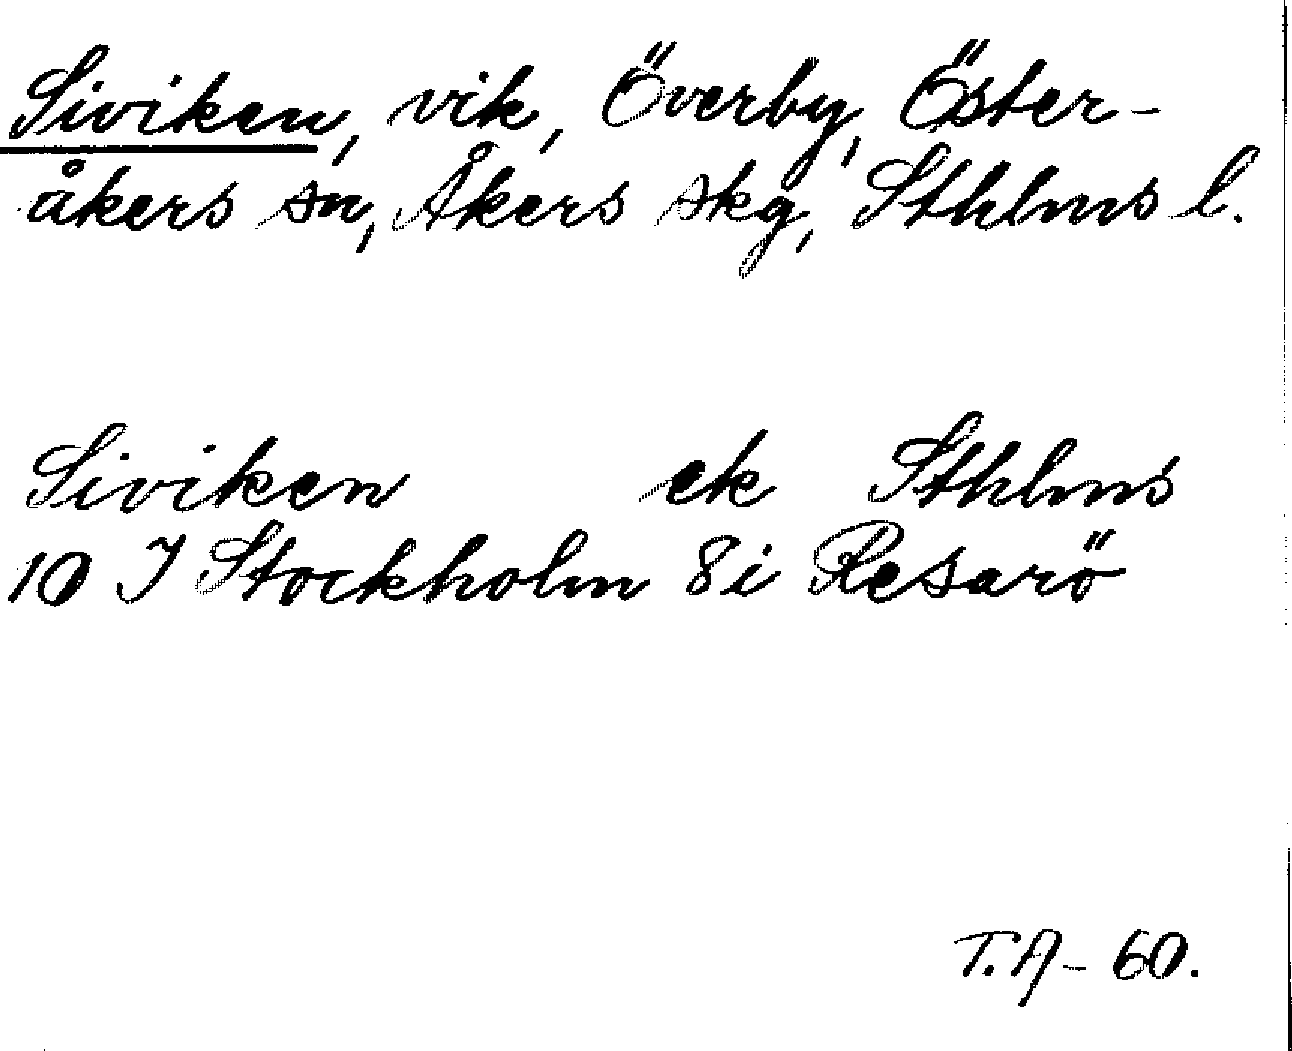 Siviken, vik, Överby, Öster-
åkers sn, Åkers skg, Sthlms l.
Siviken ek Sthlms
10 J Stockholm 8i Resarö
T.A - 60.